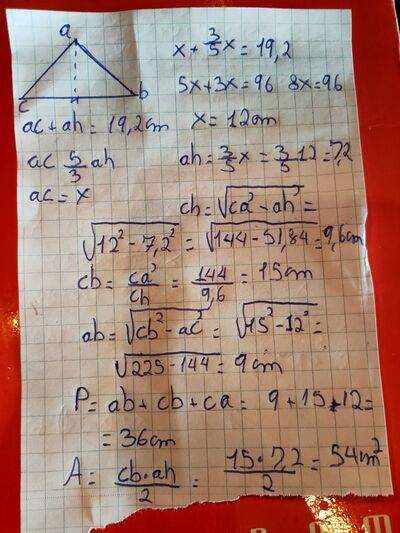 a
x + 3/5 x = 19,2
5x+3x=96 8x=96
c b
ac + ah = 19,2 cm x = 12cm
ac 5/3 ah ah = 3/5 x = 3/5 12 = 7,2
ac = x
ch = √(ca² - ah²) =
√(12² - 7,2²) = √(144 - 51,84) = 9,6cm
cb = ca²/ch = 144/9,6 = 15cm
ab = √(cb² - ac²) = √(15² - 12²) =
√(225 - 144) = 9cm
P = ab + cb + ca = 9 + 15 + 12 =
= 36cm
A = cb·ah/2 = 15·7,2/2 = 54cm²